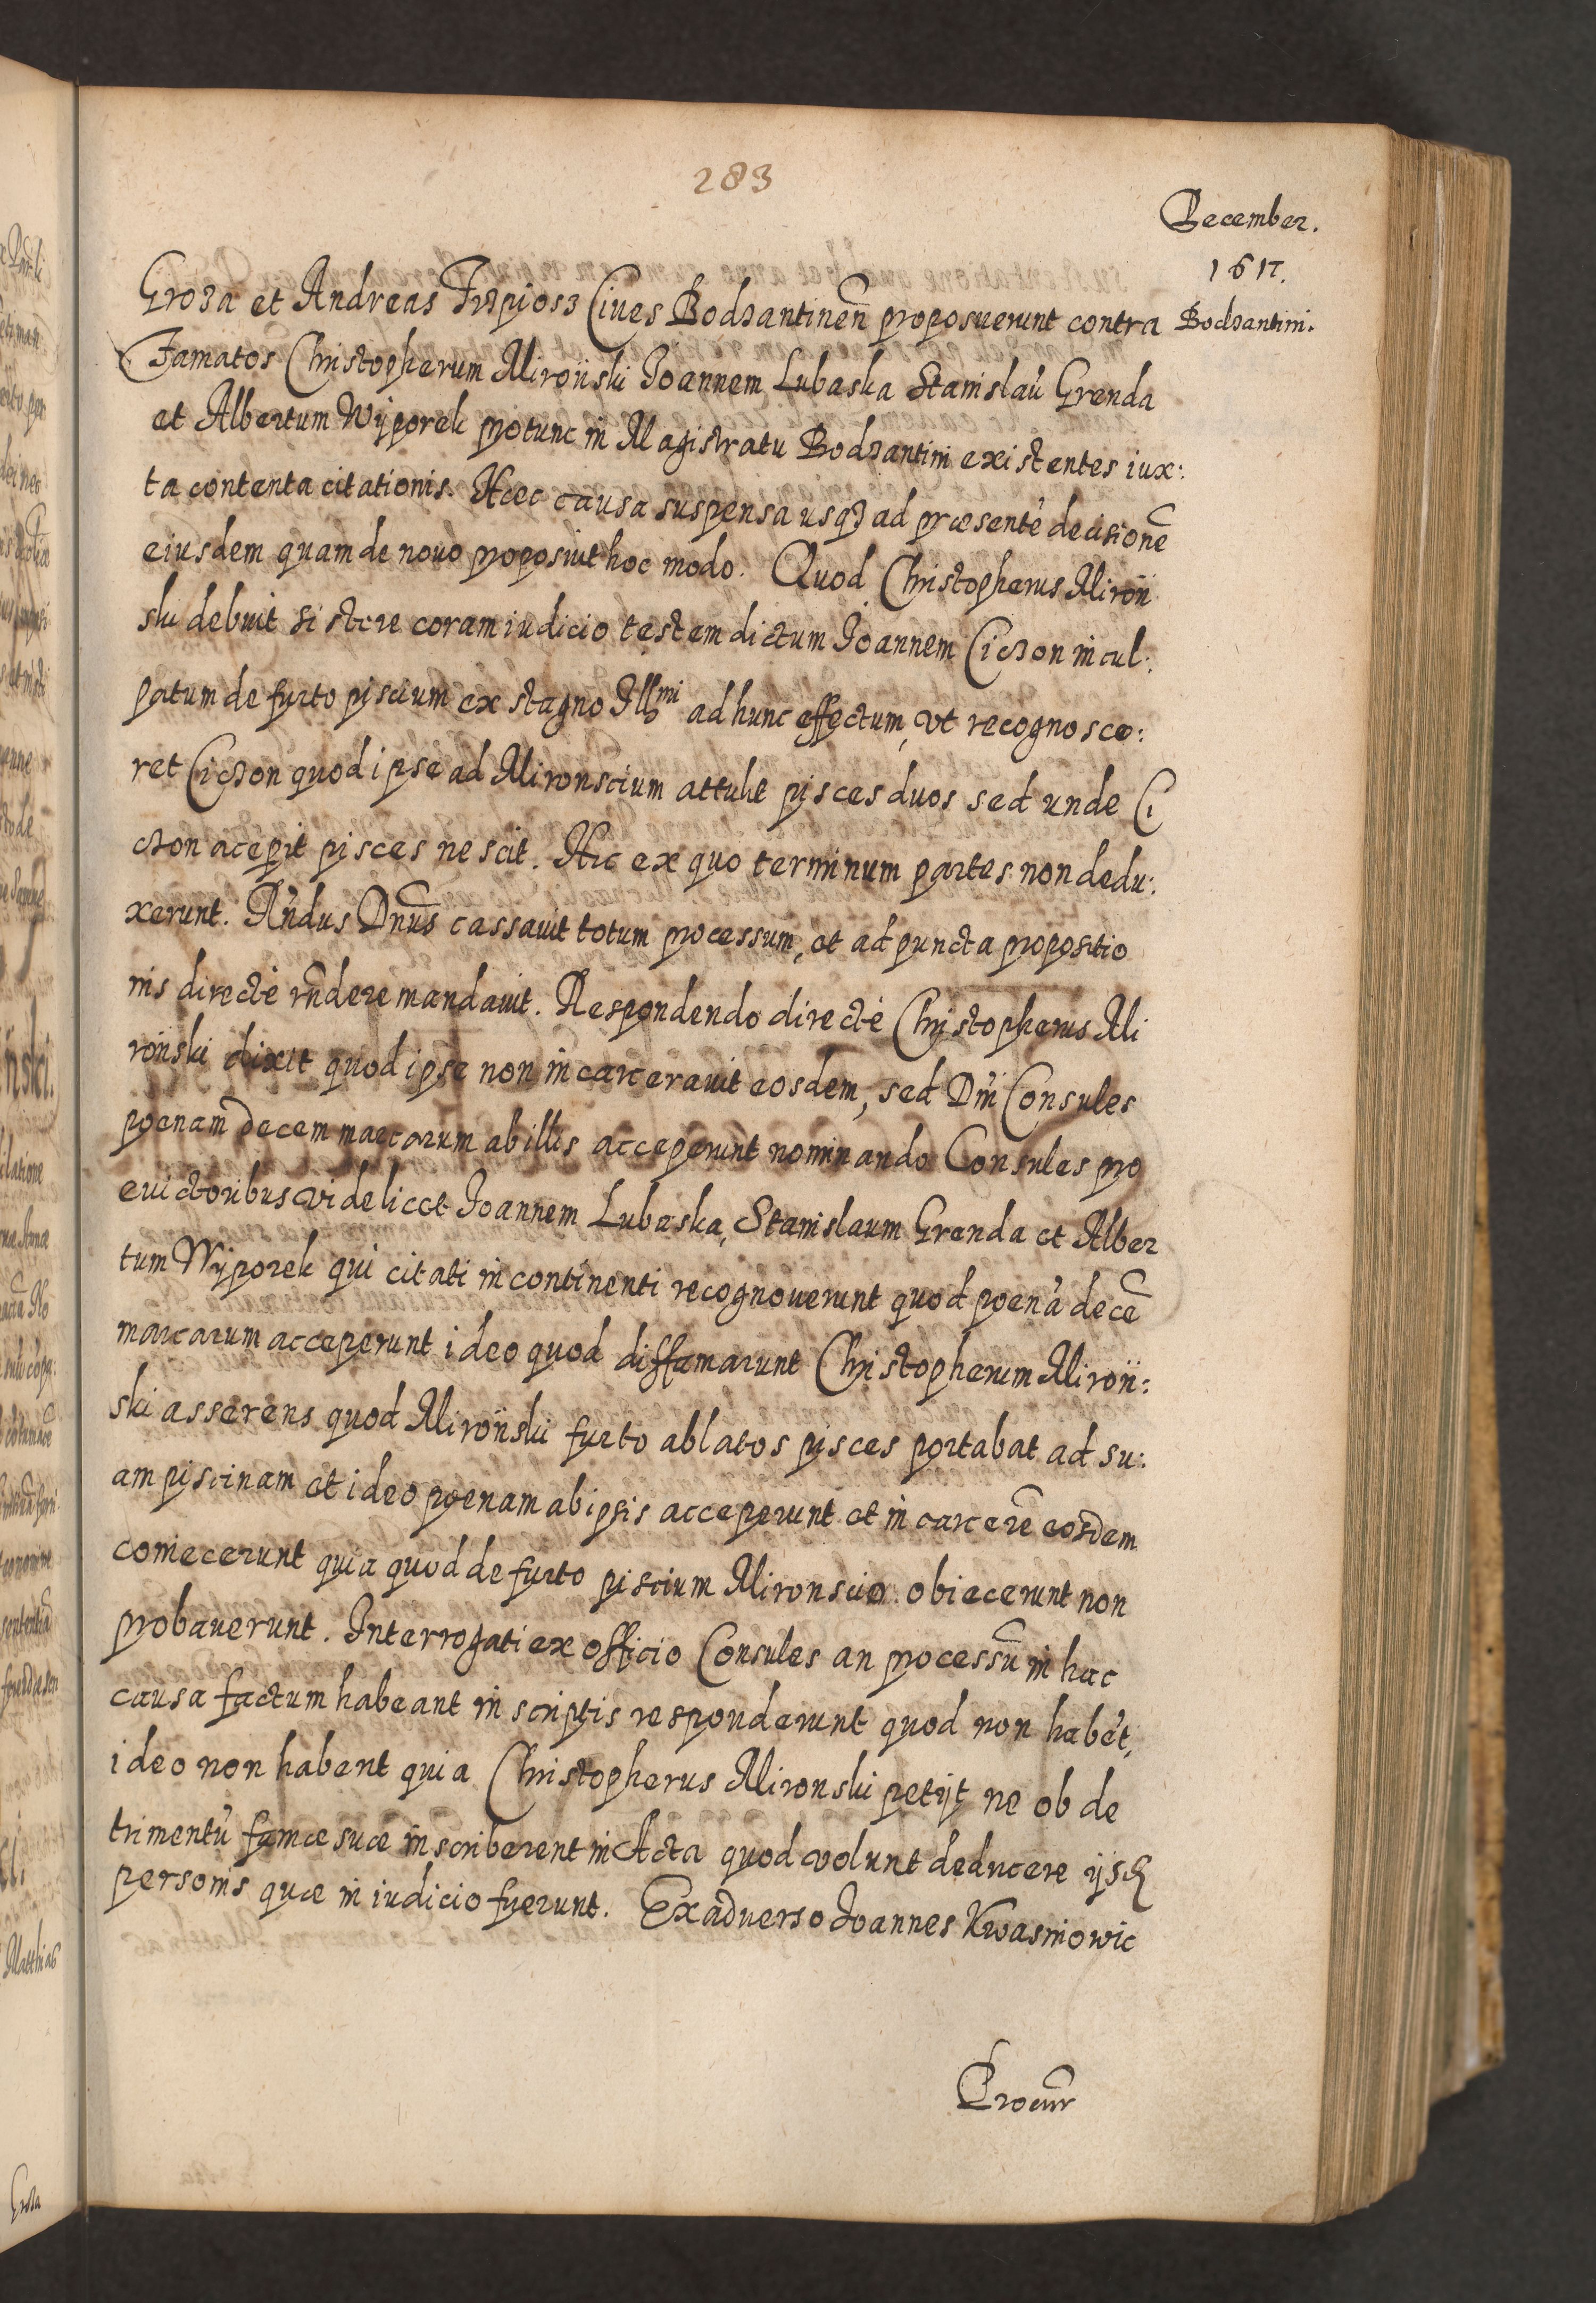 283
December.
1617.
Bodzantini.
Groza et Andreas Trzpiosz Ciues Bodzantinen̄ proposuerunt contra
Famatos Christopherum Mironski Joannem Lubaska Stanislaū Grenda
et Albertum Wyporek protunc in Magistratu Bodzantini existentes iux:
ta contenta citationis. Haec causa suspensa usq3 ad praesentē decisionē
eiusdem quam de nouo proposuit hoc modo. Quod Christopherus Miron
ski debuit sistere coram iudicio testem dictum Joannem Cichon incul:
patum de furto piscium ex stagno Ill^mi ad hunc effectum, ut recognosce:
ret Cichon quod ipse ad Mironscium attulit pisces duos sed unde Ci
chon acepit pisces nescit. Hic ex quo terminum partes non dedu:
xerunt. R̄ndus Dn̄us cassauit totum processum, et ad puncta propositio
nis directè rn̄dere mandauit. Respondendo directè Christopherus Mi
ronski dixit quod ipse non incarcerauit eosdem, sed Dn̄i Consules
poenam decem marcarum ab illis acceperunt nominando Consules pro
euictoribus videlicet Joannem Lubaska, Stanislaum Grenda et Alber
tum Wyporek qui citati incontinenti recognouerunt quod poenā decē
marcarum acceperunt ideo quod diffamarunt Christopherum Miron:
ski asserens quod Mironski furto ablatos pisces portabat ad su:
am piscinam et ideo poenam ab ipsis acceperunt et in carcerē eosdem
coniecerunt quia quod de furto piscium Mironscio obiecerunt non
probauerunt. Interrogati ex officio Consules an processū in hac
causa factum habeant in scriptis responderunt quod non habēt,
ideo non habent quia Christopherus Mironski petijt ne ob de
trimentū famae suae inscriberent in Acta quod volunt deducere ijsd
personis quae in iudicio fuerunt. Ex aduerso Joannes Kwasniowic
Procur